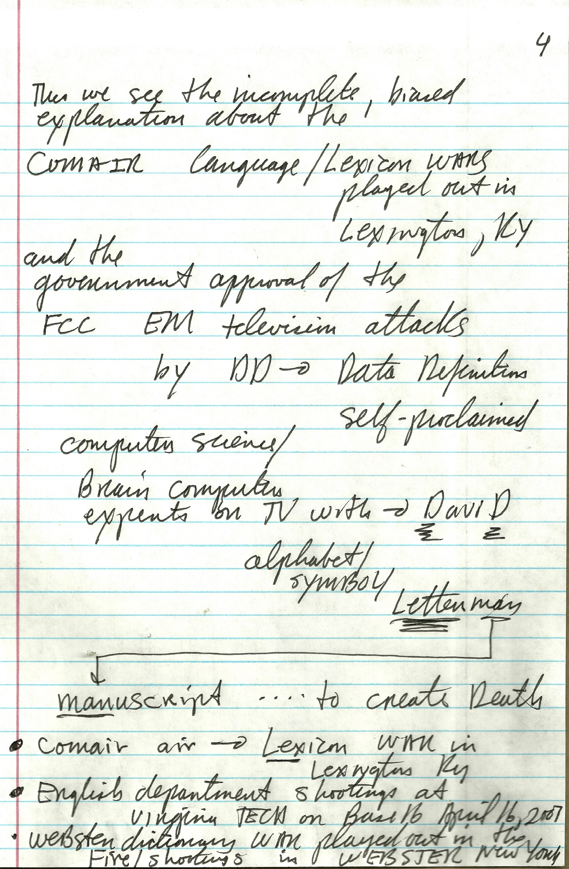 4
Thus we see the incomplete, biased
explanation about the
COMAIR language/Lexicon WARS
played out in
Lexington, Ky
and the
government approval of the
FCC EM television attacks
by DD → Data Definition
self-proclaimed
computer science/
Brain computer
experts on TV with → DaviD
alphabet/
SYMBOL/
Letterman
manuscript .... to create Death
• Comair air → Lexicon WAR in
Lexington Ky
• English department shootings at
Virginia TECH on Base 16 April 16, 2007
• Webster dictionary WAR played out in the
Fire/shootings in WEBSTER New York